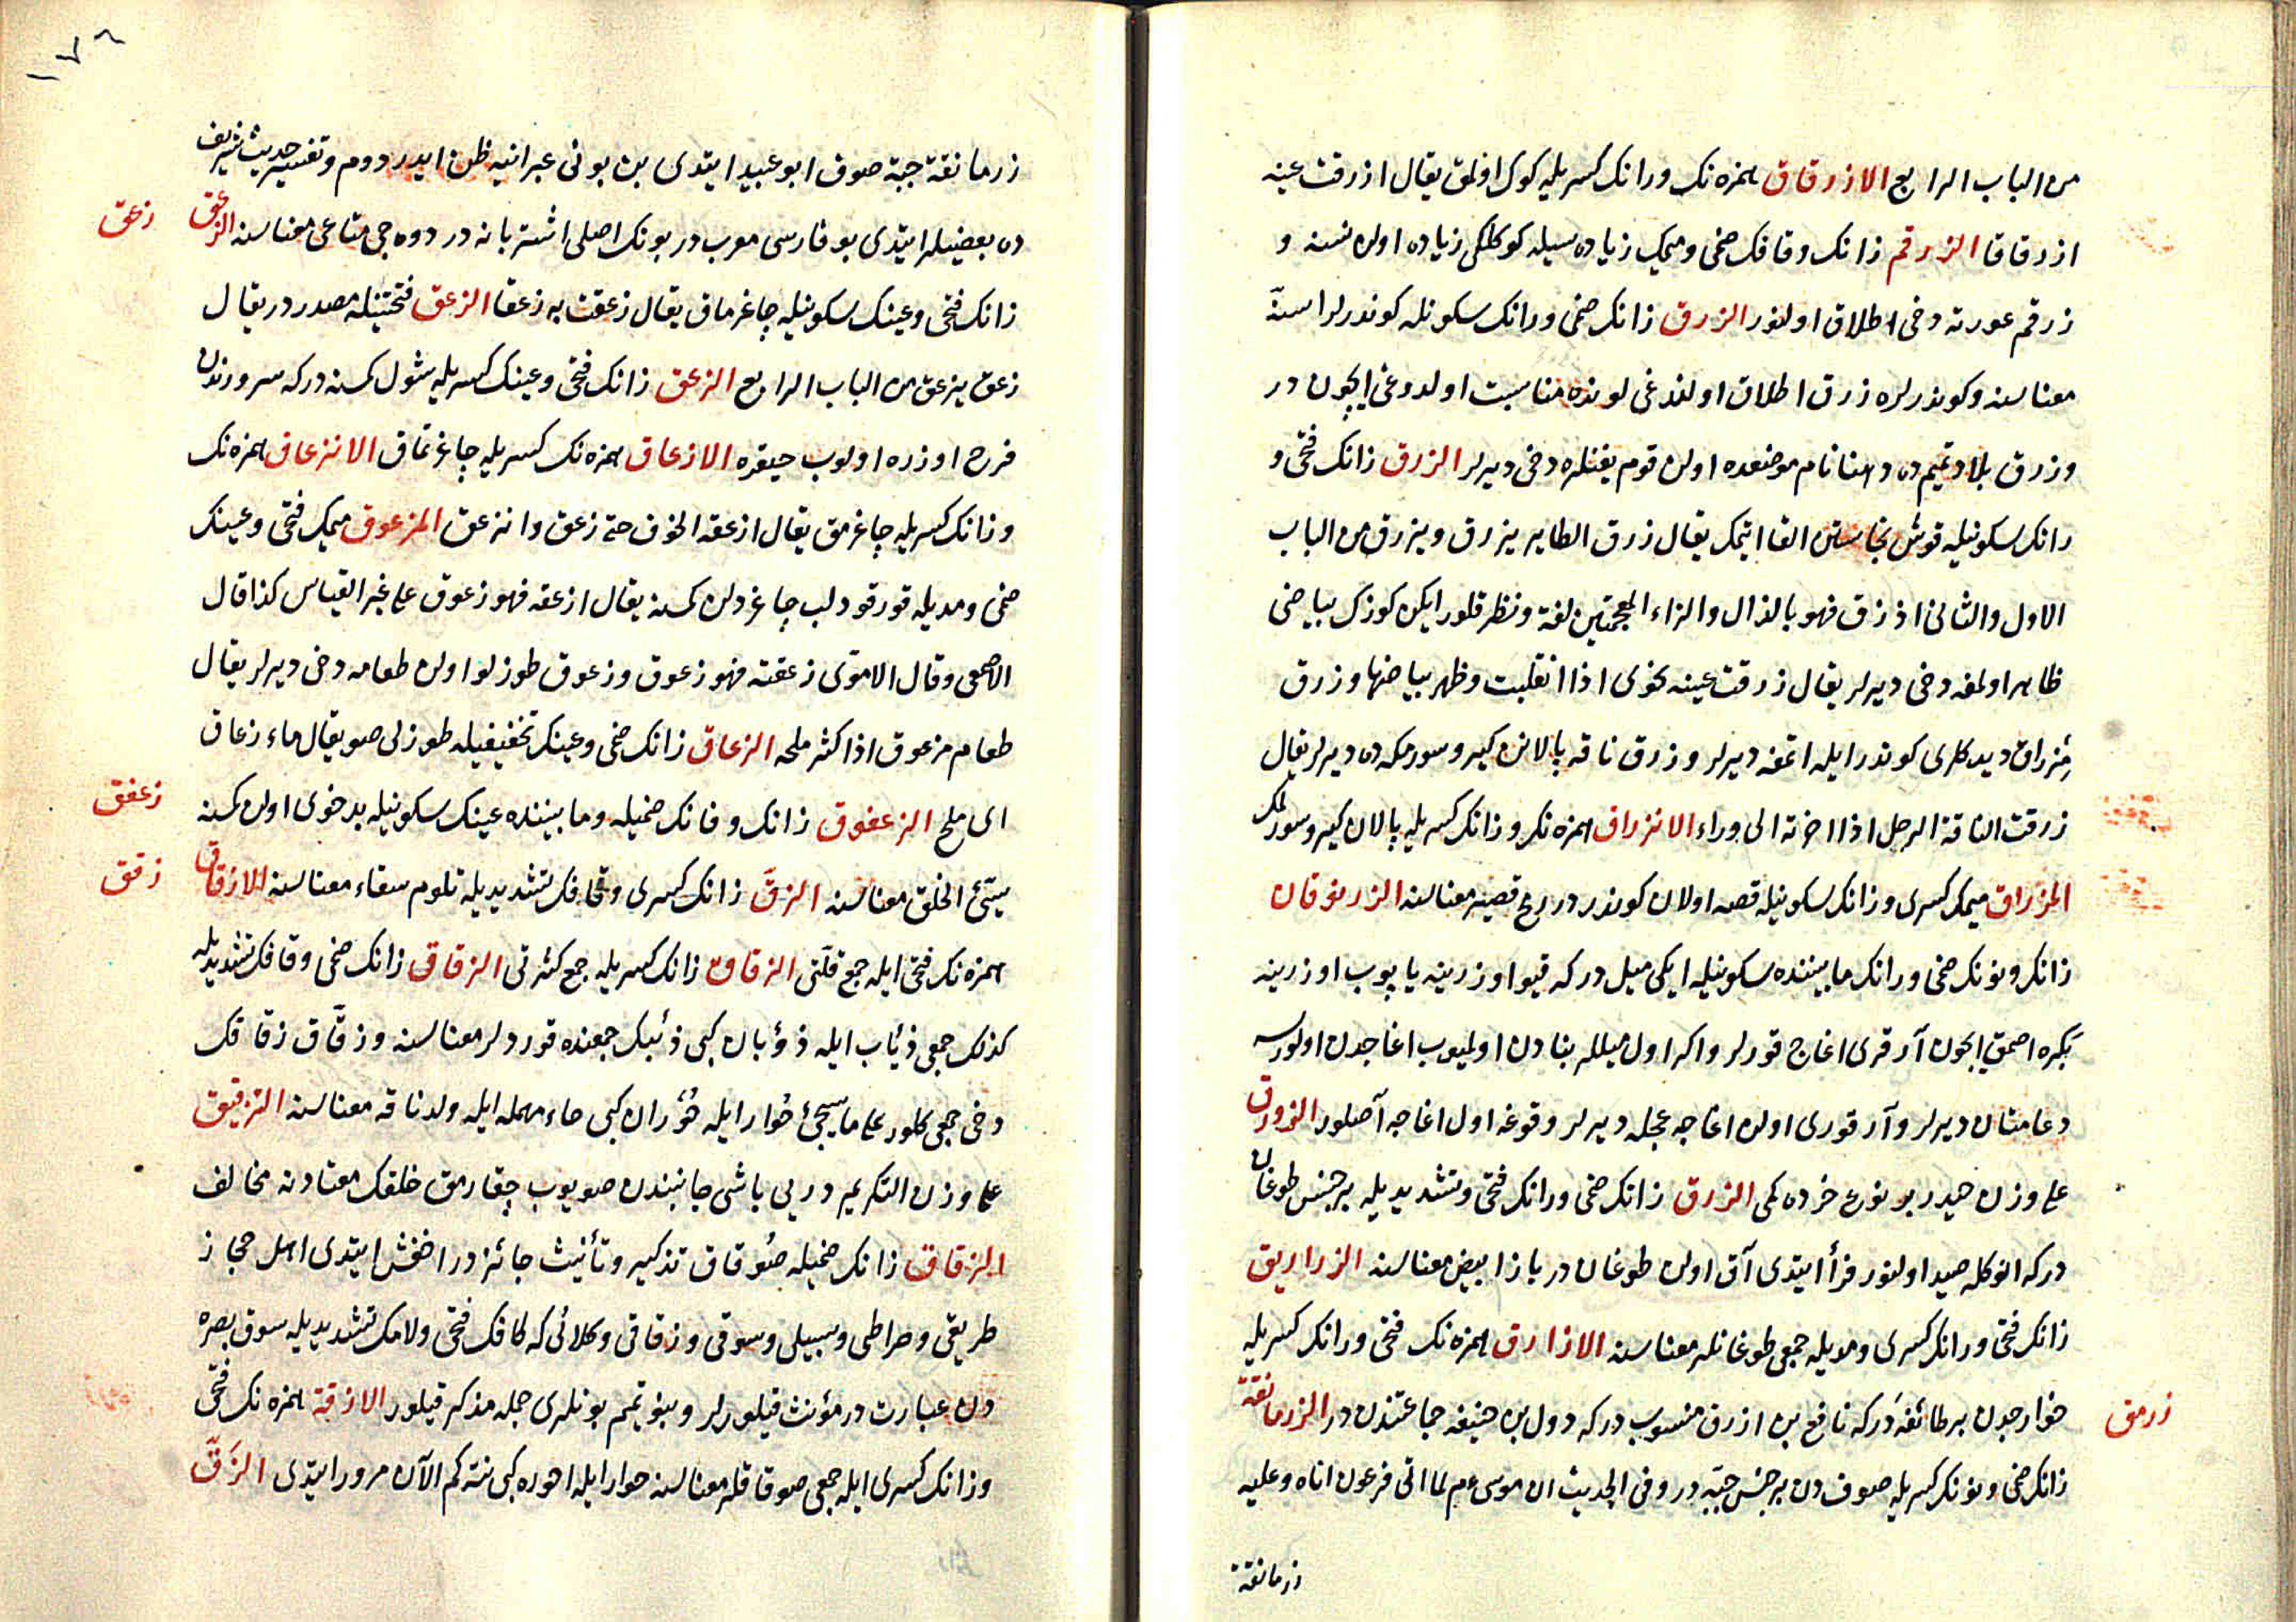 من الباب الرابع الازرقاق همزه نك ورانك كسريله كوك اولمق يقال ازرقت عينه
ازرقاقا الزرقم زانك وقافك ضمى وميمك زياده سيله كوكلكى زياده اولان نسنه و
زرقم عورته دخى اطلاق اولنور الزرق زانك ضمى ورانك سكونله كوندرلر اسنّة
معناسنه وكوندرلره زرق اطلاق اولندغى لونده مناسبت اولدوغى ايچون در
وزرق بلاد تميم ده دهنا نام موضعده اولان قوم يغنلره دخى ديرلر الزرق زانك فتحى و
رانك سكونيله قوش نجاستن القا ايتمك يقال زرق الطاير يزرق ويزرق من الباب
الاول والثانى اذ زق فهو بالذال والزاء المعجمتين لغة ونظر قلور ايكن كوزك بياضى
ظاهر اولمغه دخى ديرلر يقال زرقت عينه نحوى اذا انقلبت وظهر بياضها وزرق
مزراق ديدكلرى كوندر ايله اتمغه ديرلر وزرق ناقه پالانن كيرو سورمكه ده ديرلر يقال
زرقت الناقة الرحل اذا اخرته الى وراء الانزراق همزه نك وزانك كسريله پالان كيرو سورلمك
المزراق ميمك كسرى وزانك سكونيله قصه اولان كوندر در رمح قصير معناسنه الزرنوقان
زانك ونونك ضمى ورانك مابيننده سكونيله ايكى ميل در كه قيو اوزرينه ياپوب اوزرينه
بكره اصمق ايچون آرقرى اغاج قورلر واكر اول ميللر بنادن اولميوب اغاجدن اولورسه
دعامتان ديرلر وآرقورى اولان اغاجه عجله ديرلر وقوغه اول اغاجه آصلور الزورق
على وزن حيدر بر نوع خرده كمى الزرق زانك ضمى ورانك فتحى وتشديديله بر جنس طوغان
در كه انوكله صيد اولنور فرأ ايتدى آق اولان طوغان در باز ابيض معناسنه الزراريق
زانك فتحى ورانك كسرى ومديله جمعى طوغانلر معناسنه الازارق همزه نك فتحى ورانك كسريله
خوارجدن بر طائفه در كه نافع بن ازرق منسوب در كه دول بن حنيفه جماعتندن در الزرمانقة
زرمق
زانك ضمى ونونك كسريله صوف دن بر جنس جبّه در وفى الحديث ان موسى عم لما اتى فرعون اتاه وعليه
زرمانقة
١٧٦
زرمانقة جبة صوف ابو عبيد ايتدى بن بونى عبرانيه ظن ايدردوم وتفسير حديث شريف
ده بعضيلر ايتدى بو فارسى معرب در بونك اصلى اشتربانه در دوه جى متاعى معناسنه الزعق
زعق
زانك فتحى وعينك سكونيله چاغرماق يقال زعقت به زعقا الزعق فتحتينله مصدر در يقال
زعق يزعق من الباب الرابع الزعق زانك فتحى وعينك كسريله شول كمسنه در كه سرورندن
فرح اوزره اولوب حيقره الازعاق همزه نك كسريله چاغرتماق الانزعاق همزه نك
وزانك كسريله چاغرمق يقال ازعقه الخوف حتى زعق وانزعق المزعوق ميمك فتحى وعينك
ضمى ومديله قورقودلب چاغردلن كمسنه يقال ازعقه فهو زعوق على غير القياس كذا قال
الاصمعى وقال الاموّى زعقته فهو زعوق وزعوق طوزلو اولان طعامه دخى ديرلر يقال
طعام مزعوق اذا كثر ملحه الزعاق زانك ضمى وعينك تخفيفيله طوزلى صو يقال ماء زعاق
اى ملح الزعفوق زانك وفانك ضميله ومابيننده عينك سكونيله بدخوى اولان كمسنه
زعفق
سيّئ الخلق معناسنه الزقّ زانك كسرى وقافك تشديديله تلوم سقاء معناسنه الازقاق
زقق
همزه نك فتحى ايله جمع قلّتى الزقاق زانك كسريله جمع كثرتى الزقاق زانك ضمى وقافك تشديديله
كذلك جمعى ذئاب ايله ذؤبان كبى ذئبك جمعنده قوردلر معناسنه وزقّاق زقاقك
دخى جمعى كلور على ما سيجئ حُوار ايله حُوران كبى حاء مهمله ايله ولد ناقه معناسنه التزقيق
على وزن التكريم درىى باشى جانبندن صويوب چقارمق خلقك معتادنه مخالف
الزقاق زانك ضميله صُوقاق تذكير وتأنيث جائز در اخفش ايتدى اهل حجاز
طريقى وصراطى وسبيلى وسوقى وزقاقى وكلائى كه كافك فتحى ولامك تشديديله سوق بصره
دن عبارت در مؤنث قيلورلر وبنو تميم بونلرى جمله مذكر قيلور الازقة همزه نك فتحى
وزانك كسرى ايله جمعى صوقاقلر معناسنه حوار ايله احوره كبى نته كم الآن مرور ايتدى الزَقّ